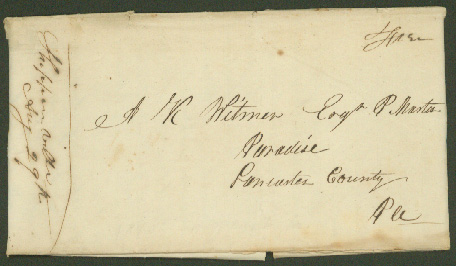 Free
A K Witmer Esqr P. Master
Paradise
Lancaster County
Pa
Aug 29th